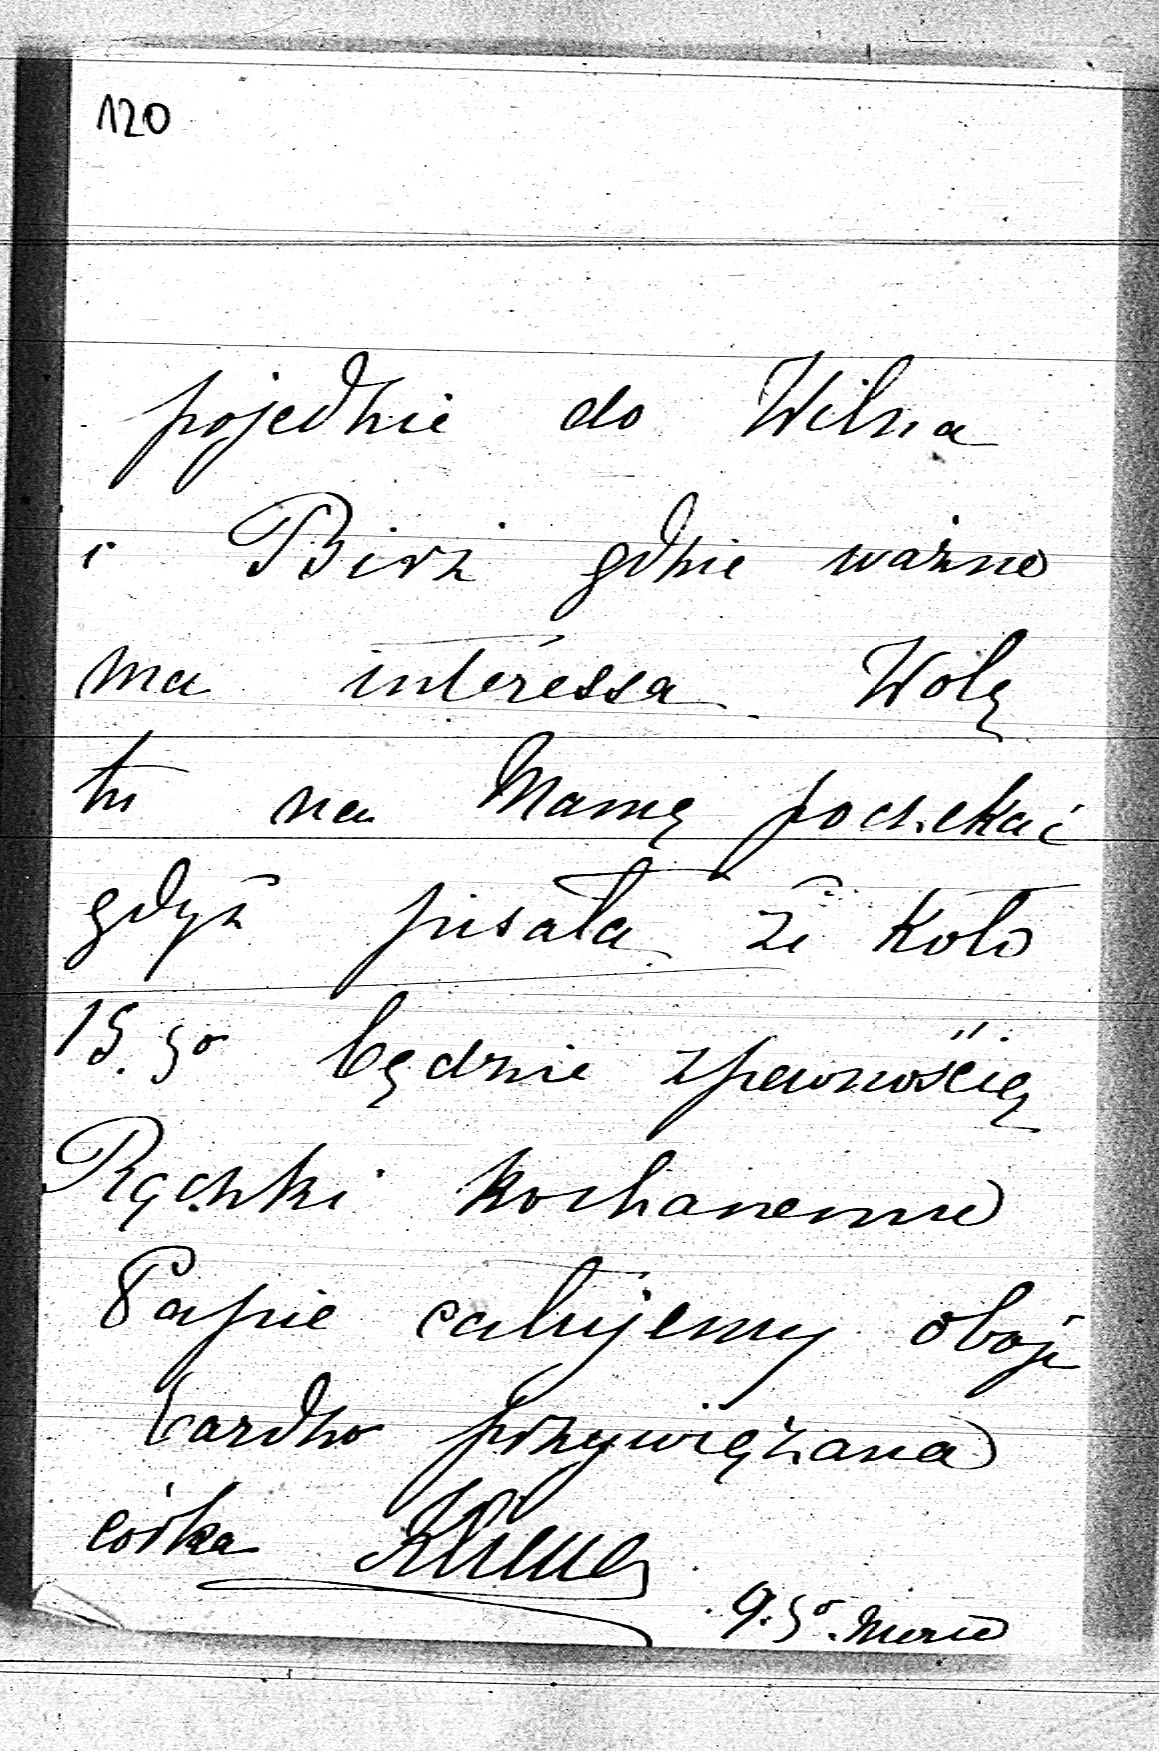 120
pojedzie do Wilna
i Birż gdzie ważne
ma interessa. Wolę
tu na Mamę poczekać
gdyż pisała że koło
15.go będzie zpewnością
Rączki kochanemu
Papie całujemy oboje
bardzo przywiązana
córka
9.go. Marca